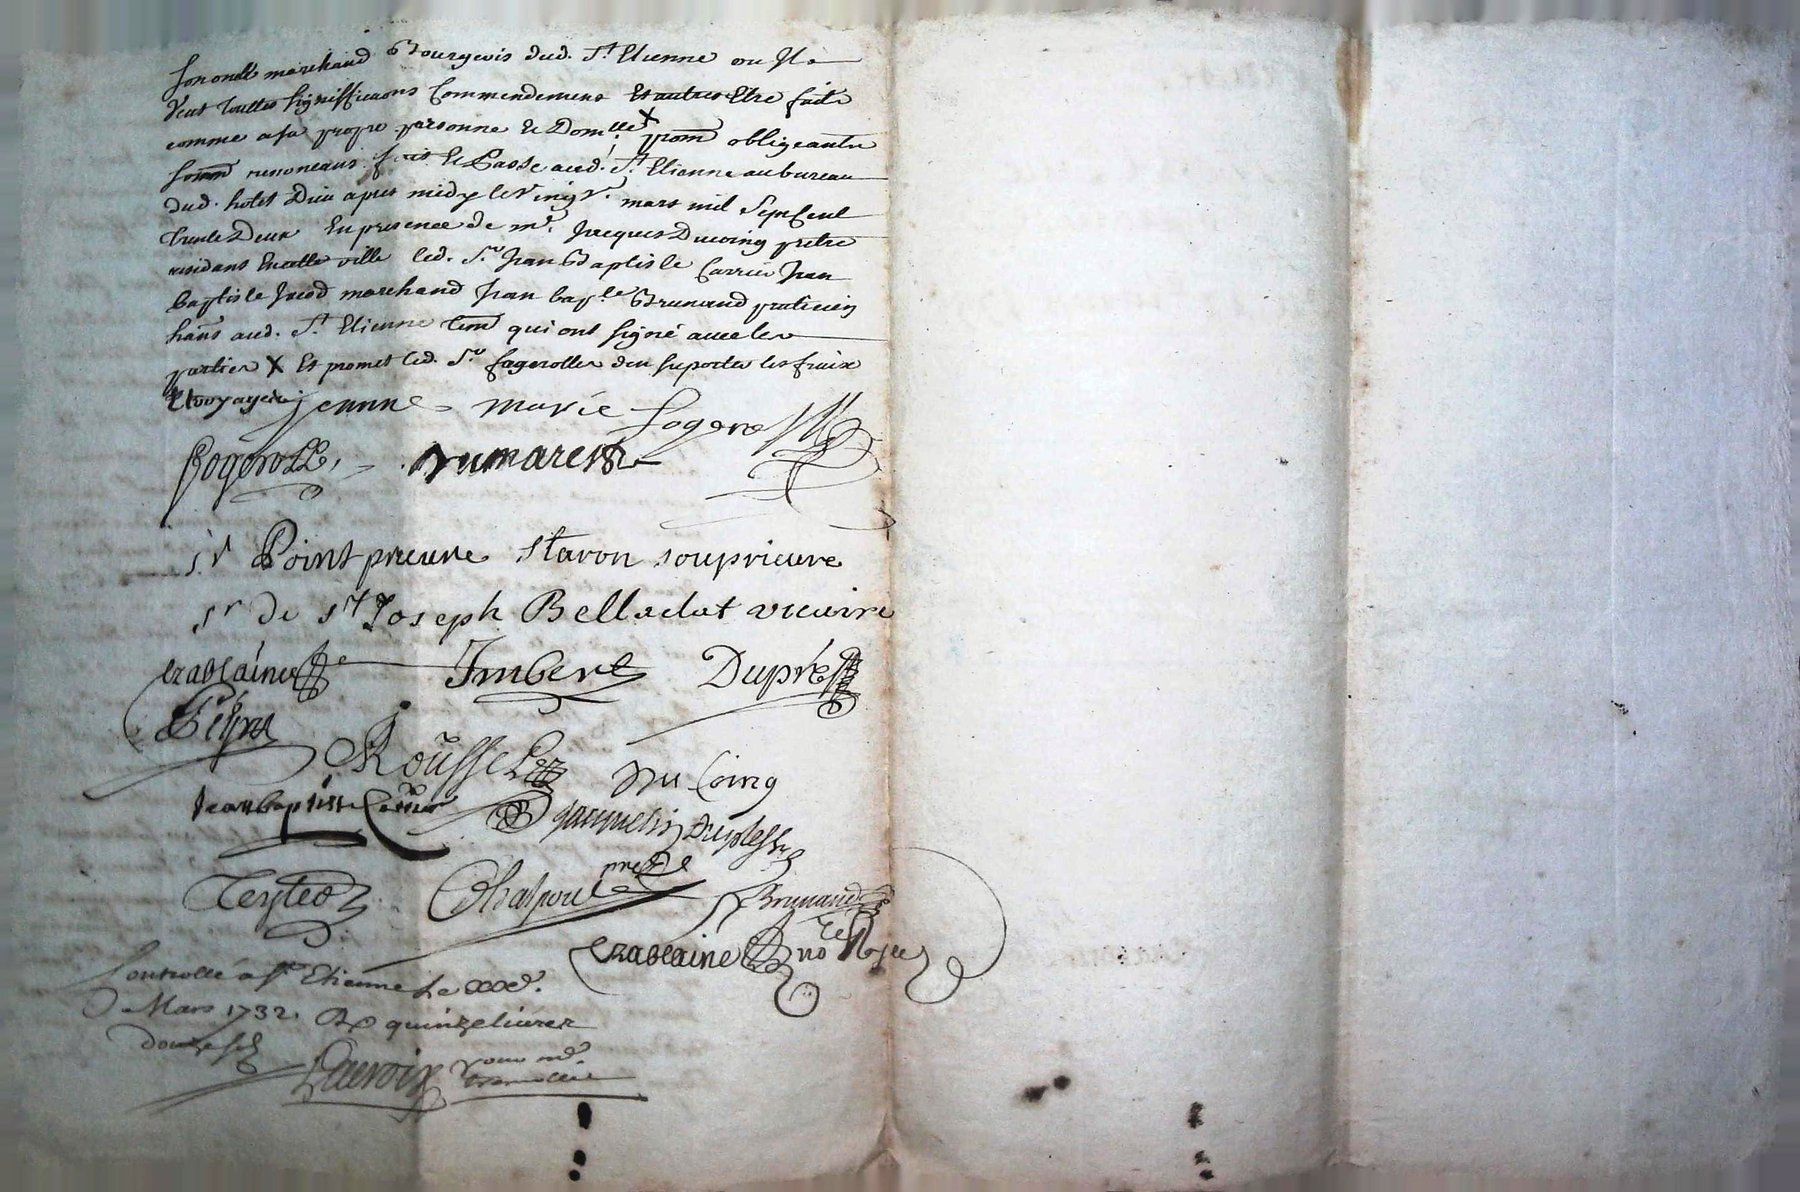 son oncle marchand Bourgeois dud. St Etienne ou Il
veut touttes significaons Commendemens Et autres Etre faits
comme a sa propre personne et Domlle X prom obligeant
soum renonceans fait Et Passé aud. St Etienne au bureau
dud. hotel Dieu apres midy le vingt mars mil Sept Cent
trente Deux En presence de mr. Jacques Ducoing prêtre
residans En cette ville led. Sr Jean Baptiste Carrier Jean
baptiste marchand Jean bapte Brunand praticien
habns aud. St Etienne tem qui ont signé avec les
parties X Et promet led. Sr fagerolles d'en suporter les fraix
Et voyages
jeanne marie fogerolle
fogerolle Dumarest
sr Point prieure staron souprieure
sr de st Joseph Belladat vicaire
Crablaine Imbert Dupré
Roussel Du Coing
Jean baptiste Carrier Jacquelin Duplessy
Teyter Chaspoul pre
Brunand
Crablaine no re
Controllé a St Etienne Le xxe.
Mars 1732. R quinze livres
douze sols
Lacroix pour mr.